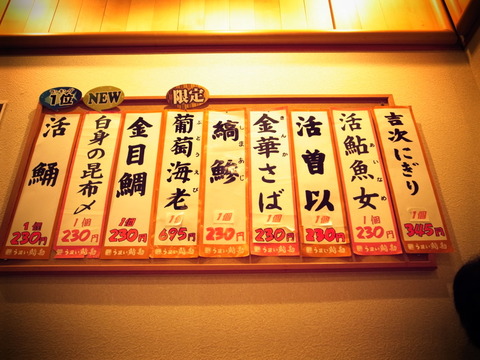 吉次にぎり
1個
345円
うまい鮨勘
活鮎魚女
あいなめ
1個
230円
うまい鮨勘
活曽以
1個
230円
うまい鮨勘
金華さば
きんか
1個
230円
うまい鮨勘
限定
縞鯵
しまあじ
1個
230円
うまい鮨勘
葡萄海老
ぶどうえび
1個
695円
うまい鮨勘
金目鯛
1個
230円
うまい鮨勘
NEW
白身の昆布〆
1個
230円
うまい鮨勘
1位
活鯒
1個
230円
うまい鮨勘